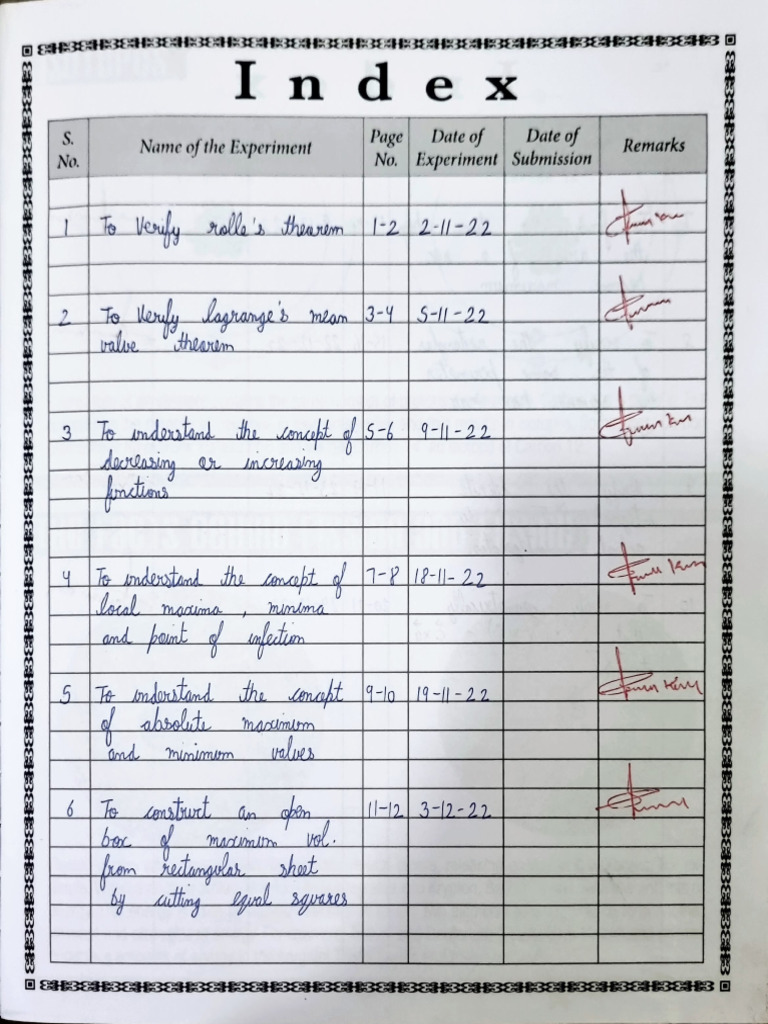 Index
S. No. Name of the Experiment Page No. Date of Experiment Date of Submission Remarks
1 To Verify rolle's thearem 1-2 2-11-22
2 To Verify lagrange's mean 3-4 5-11-22
valve thearem
3 To understand the concept of 5-6 9-11-22
decreasing or increasing
functions
4 To understand the concept of 7-8 18-11-22
local maxima , minima
and point of infection
5 To understand the concept 9-10 19-11-22
of absolute maximum
and minimum values
6 To construct an open 11-12 3-12-22
box of maximum vol.
from rectangular sheet
by cutting equal squares